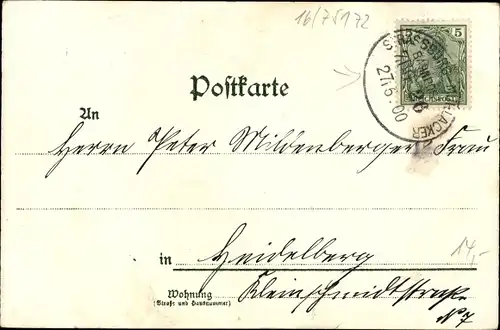 16/75172
5
REICHSPOST
STRASSBURG
27.5.00
Postkarte
An
Herrn Peter Mildenberger Frau
in Heidelberg
14,-
Wohnung
(Straße und Hausnummer)
Kleinschmidtstraße
No 7